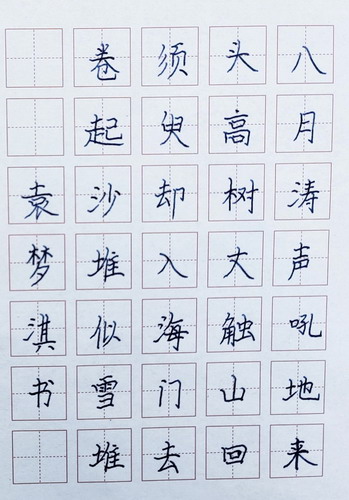 八月涛声吼地来
头高树丈触山回
须臾却入海门去
卷起沙堆似雪堆
袁梦淇书